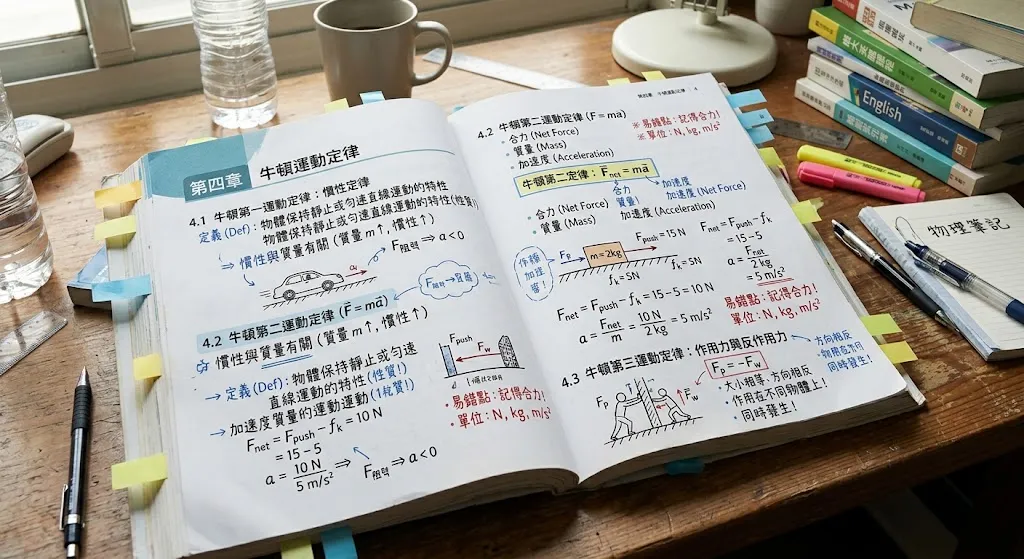 第四章 牛頓運動定律
4.1 牛頓第一運動定律：慣性定律
定義 (Def)：物體保持靜止或勻速直線運動的特性
物體保持靜止或勻速直線運動的特性(性質!)
⇒ 慣性與質量有關 (質量 m↑，慣性↑)
F阻力 ⇒ a<0
4.2 牛頓第二運動定律 (F=ma)
慣性與質量有關 (質量 m↑，慣性↑)
→ 定義 (Def)：物體保持靜止或勻速
直線運動的特性 (性質!)
→ 加速度質量的運動運動
Fnet = Fpush − fk = 10 N
= 15 − 5
a = 10 N / 5 m/s² ⇒ F阻力 ⇒ a<0
Fpush
Fw
易錯點：記得合力!
• 單位：N, kg, m/s²
4.2 牛頓第二運動定律 (F=ma)
• 合力 (Net Force)
• 質量 (Mass)
• 加速度 (Acceleration)
※ 易錯點：記得合力!
※ 單位：N, kg, m/s²
牛頓第二定律：Fnet = ma
合力
質量
加速度
• 合力 (Net Force)
加速度 (Net Force)
• 質量 (Mass)
加速度 (Acceleration)
Fp
m=2kg
Fpush=15N
fk=5N
fk=5N
Fnet = Fpush − fk
= 15−5
a = Fnet / 2 kg
= 5 m/s²
Fnet = Fpush − fk = 15−5 = 10 N
a = Fnet / m = 10 N / 2 kg = 5 m/s²
易錯點：記得合力!
單位：N, kg, m/s²
4.3 牛頓第三運動定律：作用力與反作用力
Fp = −Fw
• 方向相反
同時發生!
Fp
Fw
• 大小相等，方向相反
• 作用在不同物體上!
• 同時發生!
物理筆記
English